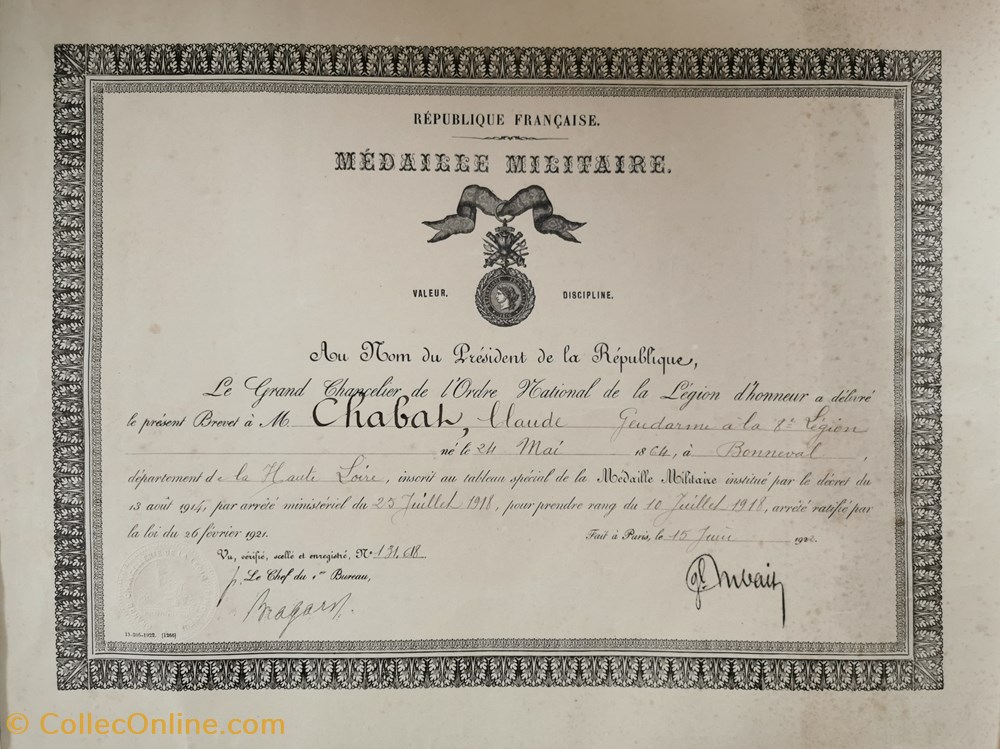 RÉPUBLIQUE FRANÇAISE.
MÉDAILLE MILITAIRE.
VALEUR. DISCIPLINE.
Au Nom du Président de la République,
Le Grand Chancelier de l'Ordre National de la Légion d'honneur a délivré
le présent Brevet à M. Chabat, Claude Gendarme à la 8e Légion
né le 24 Mai 1864, à Bonneval,
département de la Haute Loire, inscrit au tableau spécial de la Médaille Militaire institué par le décret du
13 août 1914, par arrêté ministériel du 25 Juillet 1918, pour prendre rang du 10 Juillet 1918, arrêté ratifié par
la loi du 26 février 1921. Fait à Paris, le 15 Juin
Vu, vérifié, scellé et enregistré, N° 131.618
Le Chef du 1er Bureau,
11-306-1922. [1200]
© CollecOnline.com